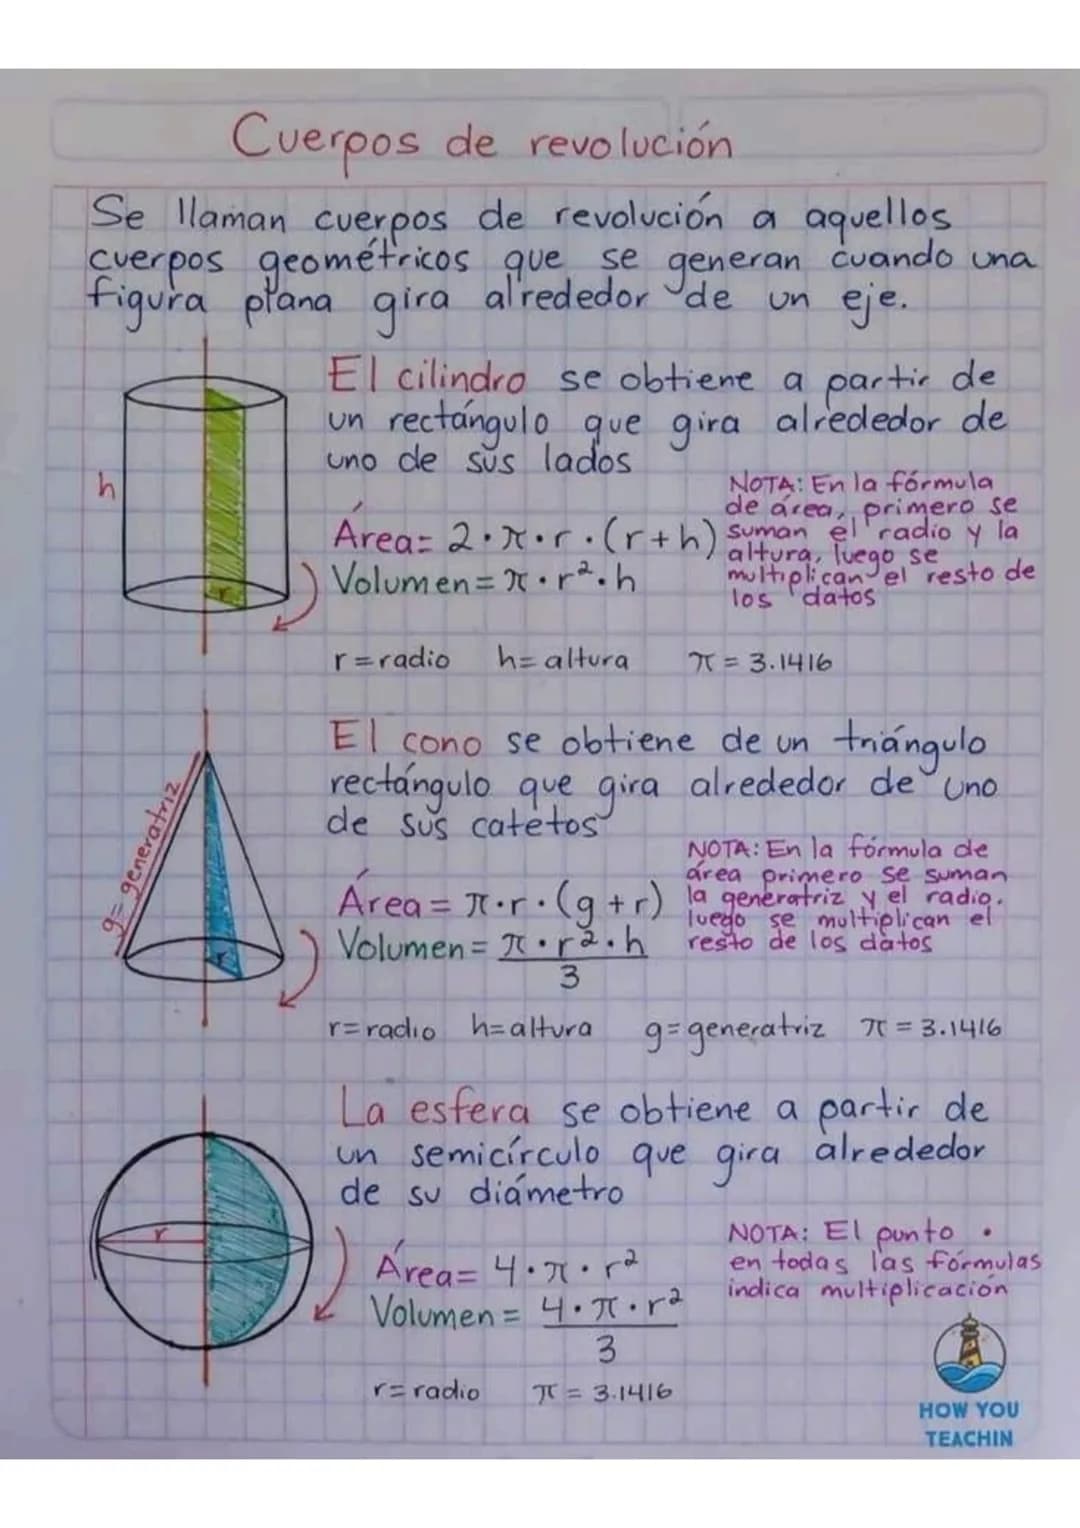 Cuerpos de revolución
Se llaman cuerpos de revolución a aquellos
cuerpos geométricos que se generan cuando una
figura plana gira alrededor de un eje.
El cilindro se obtiene a partir de
un rectángulo que gira alrededor de
uno de sus lados
h
r
Área= 2·π·r·(r+h)
Volumen= π·r²·h
NOTA: En la fórmula
de área, primero se
suman el radio y la
altura, luego se
multiplican el resto de
los datos
r=radio h=altura π=3.1416
El cono se obtiene de un triángulo
rectángulo que gira alrededor de uno
de sus catetos
g=generatriz
r
Área= π·r·(g+r)
Volumen= π·r²·h
3
NOTA: En la fórmula de
área primero se suman
la generatriz y el radio,
luego se multiplican el
resto de los datos
r=radio h=altura g=generatriz π=3.1416
La esfera se obtiene a partir de
un semicírculo que gira alrededor
de su diámetro
r
Área= 4·π·r²
Volumen= 4·π·r²
3
NOTA: El punto ·
en todas las fórmulas
indica multiplicación
r=radio π=3.1416
HOW YOU
TEACHIN